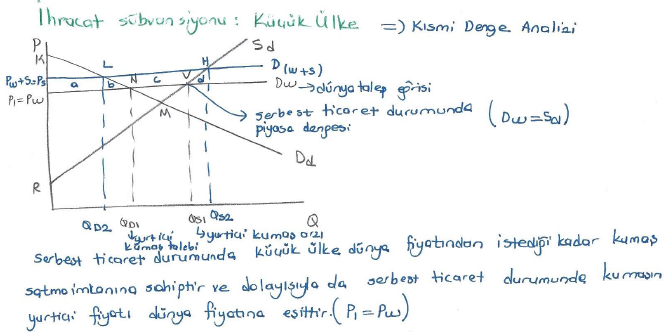 İhracat sübvansiyonu: Küçük Ülke => Kısmi Denge Analizi
P
K
Sd
L
H
D(w+s)
Pw+S=Ps
a
b
N
c
V
d
Dw → dünya talep eğrisi
P1=Pw
M
serbest ticaret durumunda (Dw=Sd)
piyasa dengesi
Dd
R
QD2
QD1
QS1
QS2
Q
yurtiçi kumaş talebi
yurtiçi kumaş arzı
Serbest ticaret durumunda küçük ülke dünya fiyatından istediği kadar kumaş
satma imkanına sahiptir ve dolayısıyla da serbest ticaret durumunda kumaşın
yurtiçi fiyatı dünya fiyatına eşittir. (P1=Pw)